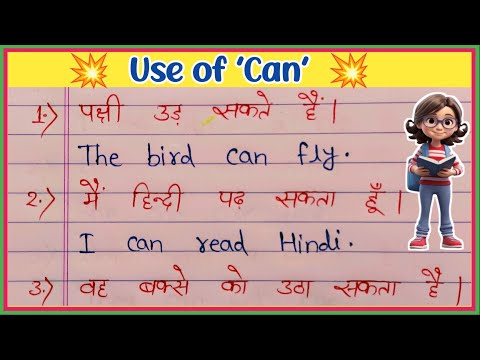 Use of 'Can'
1.) पक्षी उड़ सकते हैं।
The bird can fly.
2.) मैं हिन्दी पढ़ सकता हूँ।
I can read Hindi.
3.) वह बक्से को उठा सकता है।